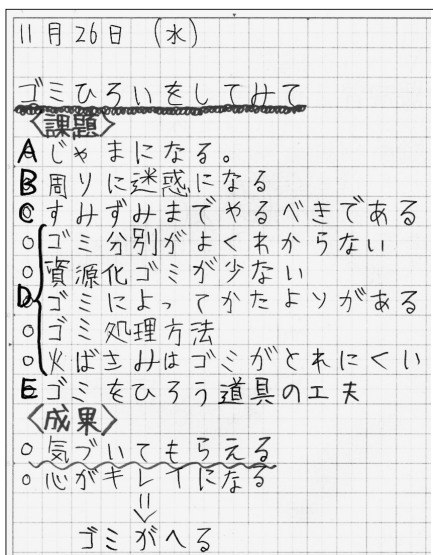 11月26日 (水)
ゴミひろいをしてみて
〈課題〉
A じゃまになる。
B 周りに迷惑になる
C すみずみまでやるべきである
○ ゴミ分別がよくわからない
○ 資源化ゴミが少ない
D ゴミによってかたよりがある
○ ゴミ処理方法
○ 火ばさみはゴミがとれにくい
E ゴミをひろう道具の工夫
〈成果〉
○ 気づいてもらえる
○ 心がキレイになる
⇓
ゴミがへる